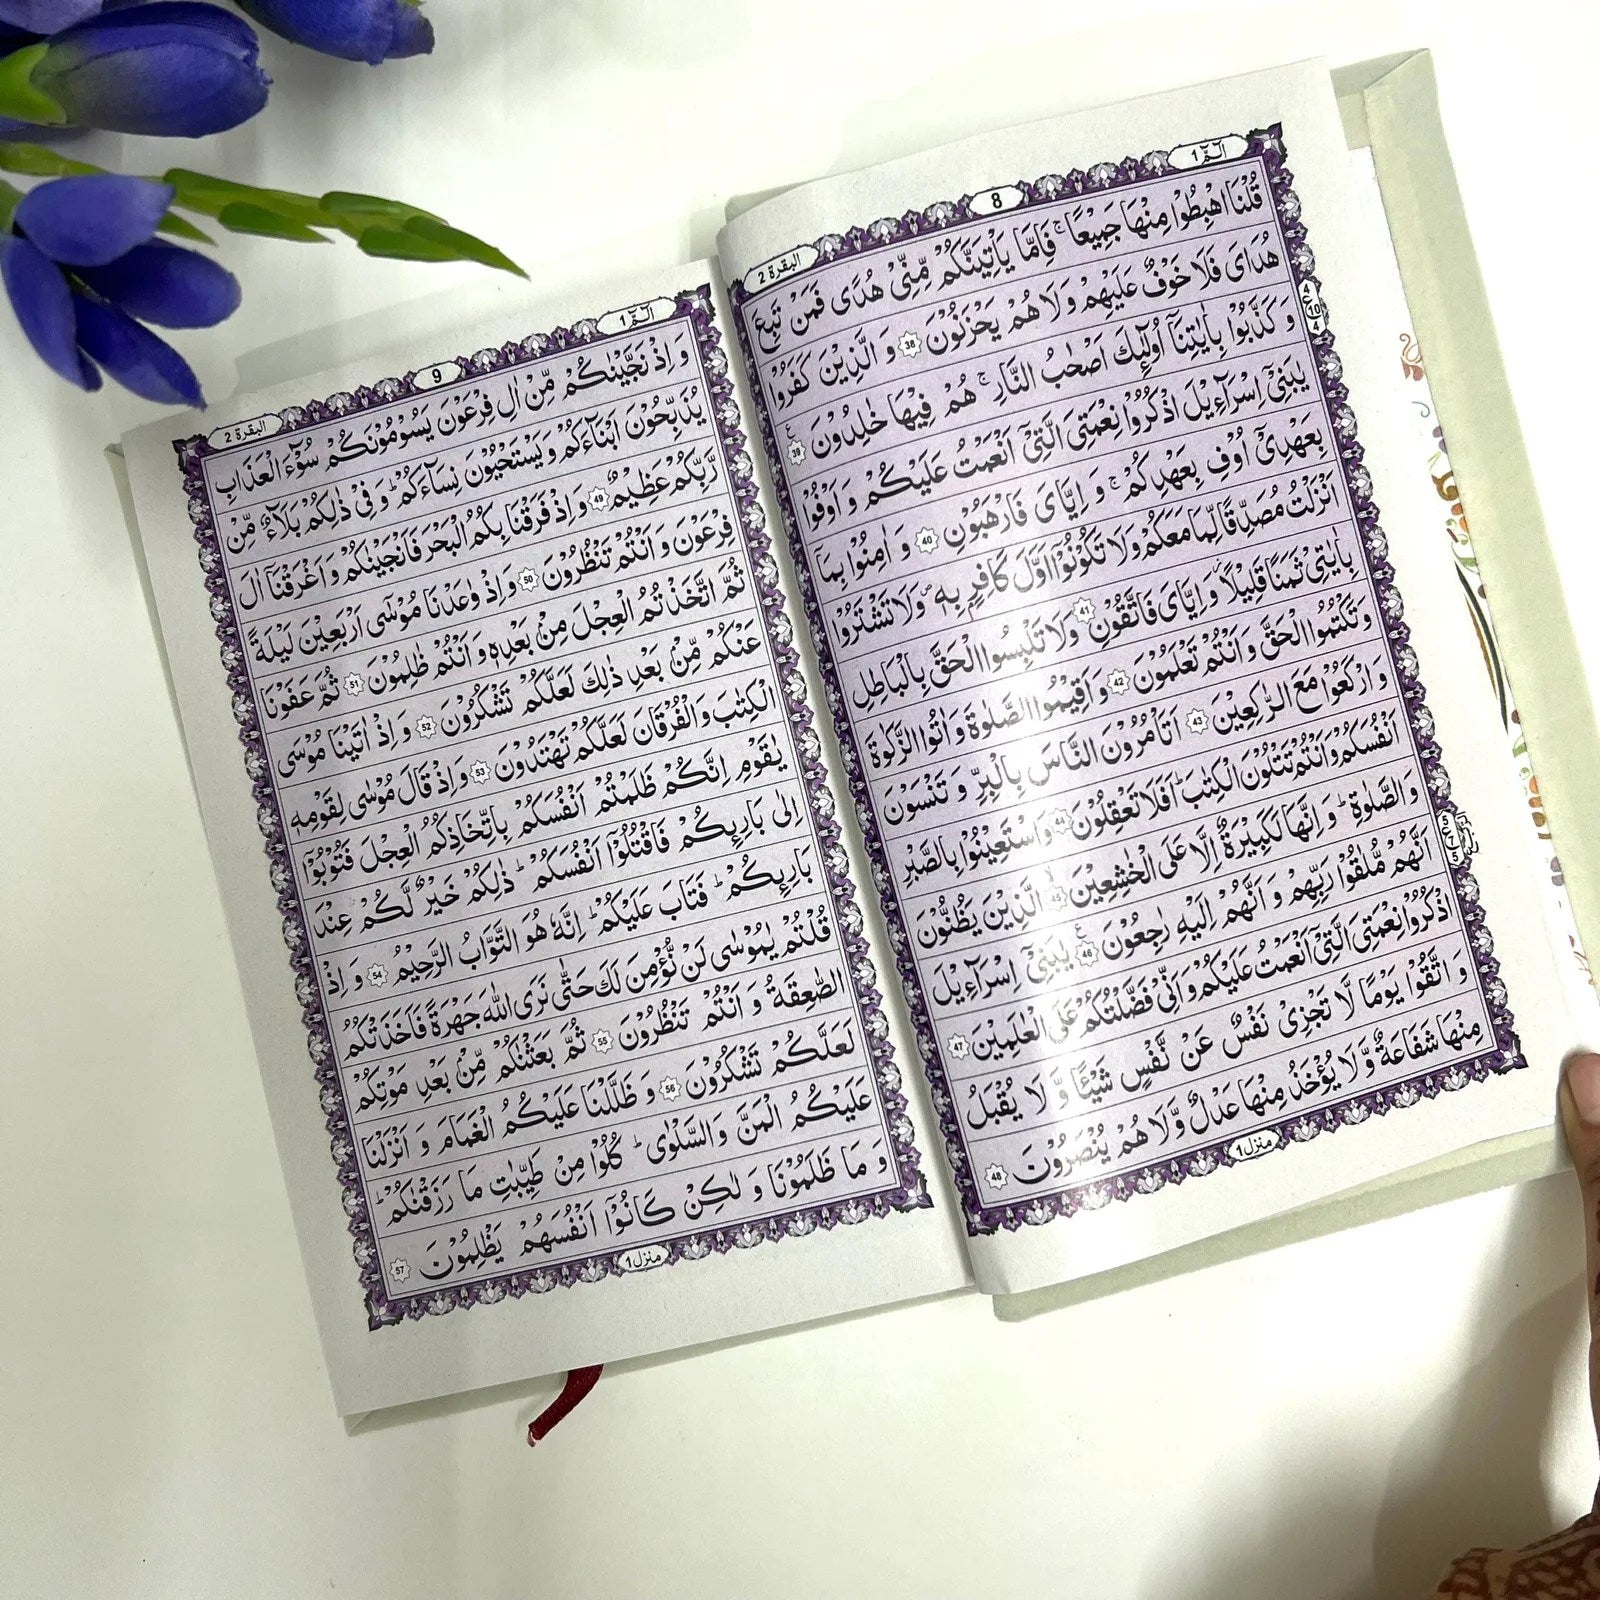 الٓمّٓ 1
8
البقرة 2
قُلْنَا اهْبِطُوْا مِنْهَا جَمِيْعًا ۚ فَاِمَّا يَاْتِيَنَّكُمْ مِّنِّيْ هُدًى فَمَنْ تَبِعَ
هُدَايَ فَلَا خَوْفٌ عَلَيْهِمْ وَلَا هُمْ يَحْزَنُوْنَ 38 وَ الَّذِيْنَ كَفَرُوْا
وَ كَذَّبُوْا بِاٰيٰتِنَاۤ اُولٰٓئِكَ اَصْحٰبُ النَّارِ ۚ هُمْ فِيْهَا خٰلِدُوْنَ 39
يٰبَنِيْۤ اِسْرَآءِيْلَ اذْكُرُوْا نِعْمَتِيَ الَّتِيْۤ اَنْعَمْتُ عَلَيْكُمْ وَ اَوْفُوْا
بِعَهْدِيْۤ اُوْفِ بِعَهْدِكُمْ ۚ وَ اِيَّايَ فَارْهَبُوْنِ 40 وَ اٰمِنُوْا بِمَاۤ
اَنْزَلْتُ مُصَدِّقًا لِّمَا مَعَكُمْ وَلَا تَكُوْنُوْۤا اَوَّلَ كَافِرٍۭ بِهٖ ۪ وَلَا تَشْتَرُوْا
بِاٰيٰتِيْ ثَمَنًا قَلِيْلًا ؗ وَ اِيَّايَ فَاتَّقُوْنِ 41 وَلَا تَلْبِسُوا الْحَقَّ بِالْبَاطِلِ
وَ تَكْتُمُوا الْحَقَّ وَ اَنْتُمْ تَعْلَمُوْنَ 42 وَ اَقِيْمُوا الصَّلٰوةَ وَ اٰتُوا الزَّكٰوةَ
وَ ارْكَعُوْا مَعَ الرّٰكِعِيْنَ 43 اَتَاْمُرُوْنَ النَّاسَ بِالْبِرِّ وَ تَنْسَوْنَ
اَنْفُسَكُمْ وَ اَنْتُمْ تَتْلُوْنَ الْكِتٰبَ ؕ اَفَلَا تَعْقِلُوْنَ 44 وَ اسْتَعِيْنُوْا بِالصَّبْرِ
وَ الصَّلٰوةِ ؕ وَ اِنَّهَا لَكَبِيْرَةٌ اِلَّا عَلَى الْخٰشِعِيْنَ 45 الَّذِيْنَ يَظُنُّوْنَ
اَنَّهُمْ مُّلٰقُوْا رَبِّهِمْ وَ اَنَّهُمْ اِلَيْهِ رٰجِعُوْنَ 46 يٰبَنِيْۤ اِسْرَآءِيْلَ
اذْكُرُوْا نِعْمَتِيَ الَّتِيْۤ اَنْعَمْتُ عَلَيْكُمْ وَ اَنِّيْ فَضَّلْتُكُمْ عَلَى الْعٰلَمِيْنَ 47
وَ اتَّقُوْا يَوْمًا لَّا تَجْزِيْ نَفْسٌ عَنْ نَّفْسٍ شَيْـًٔا وَّ لَا يُقْبَلُ
مِنْهَا شَفَاعَةٌ وَّ لَا يُؤْخَذُ مِنْهَا عَدْلٌ وَّ لَا هُمْ يُنْصَرُوْنَ 48
منزل 1
الٓمّٓ 1
9
البقرة 2
وَ اِذْ نَجَّيْنٰكُمْ مِّنْ اٰلِ فِرْعَوْنَ يَسُوْمُوْنَكُمْ سُوْٓءَ الْعَذَابِ
يُذَبِّحُوْنَ اَبْنَآءَكُمْ وَ يَسْتَحْيُوْنَ نِسَآءَكُمْ ؕ وَ فِيْ ذٰلِكُمْ بَلَآءٌ مِّنْ
رَّبِّكُمْ عَظِيْمٌ 49 وَ اِذْ فَرَقْنَا بِكُمُ الْبَحْرَ فَاَنْجَيْنٰكُمْ وَ اَغْرَقْنَاۤ اٰلَ
فِرْعَوْنَ وَ اَنْتُمْ تَنْظُرُوْنَ 50 وَ اِذْ وٰعَدْنَا مُوْسٰۤى اَرْبَعِيْنَ لَيْلَةً
ثُمَّ اتَّخَذْتُمُ الْعِجْلَ مِنْۢ بَعْدِهٖ وَ اَنْتُمْ ظٰلِمُوْنَ 51 ثُمَّ عَفَوْنَا
عَنْكُمْ مِّنْۢ بَعْدِ ذٰلِكَ لَعَلَّكُمْ تَشْكُرُوْنَ 52 وَ اِذْ اٰتَيْنَا مُوْسَى
الْكِتٰبَ وَ الْفُرْقَانَ لَعَلَّكُمْ تَهْتَدُوْنَ 53 وَ اِذْ قَالَ مُوْسٰى لِقَوْمِهٖ
يٰقَوْمِ اِنَّكُمْ ظَلَمْتُمْ اَنْفُسَكُمْ بِاتِّخَاذِكُمُ الْعِجْلَ فَتُوْبُوْۤا
اِلٰى بَارِئِكُمْ فَاقْتُلُوْۤا اَنْفُسَكُمْ ؕ ذٰلِكُمْ خَيْرٌ لَّكُمْ عِنْدَ
بَارِئِكُمْ ؕ فَتَابَ عَلَيْكُمْ ؕ اِنَّهٗ هُوَ التَّوَّابُ الرَّحِيْمُ 54 وَ اِذْ
قُلْتُمْ يٰمُوْسٰى لَنْ نُّؤْمِنَ لَكَ حَتّٰى نَرَى اللّٰهَ جَهْرَةً فَاَخَذَتْكُمُ
الصّٰعِقَةُ وَ اَنْتُمْ تَنْظُرُوْنَ 55 ثُمَّ بَعَثْنٰكُمْ مِّنْۢ بَعْدِ مَوْتِكُمْ
لَعَلَّكُمْ تَشْكُرُوْنَ 56 وَ ظَلَّلْنَا عَلَيْكُمُ الْغَمَامَ وَ اَنْزَلْنَا
عَلَيْكُمُ الْمَنَّ وَ السَّلْوٰى ؕ كُلُوْا مِنْ طَيِّبٰتِ مَا رَزَقْنٰكُمْ ؕ
وَ مَا ظَلَمُوْنَا وَ لٰكِنْ كَانُوْۤا اَنْفُسَهُمْ يَظْلِمُوْنَ 57
منزل 1